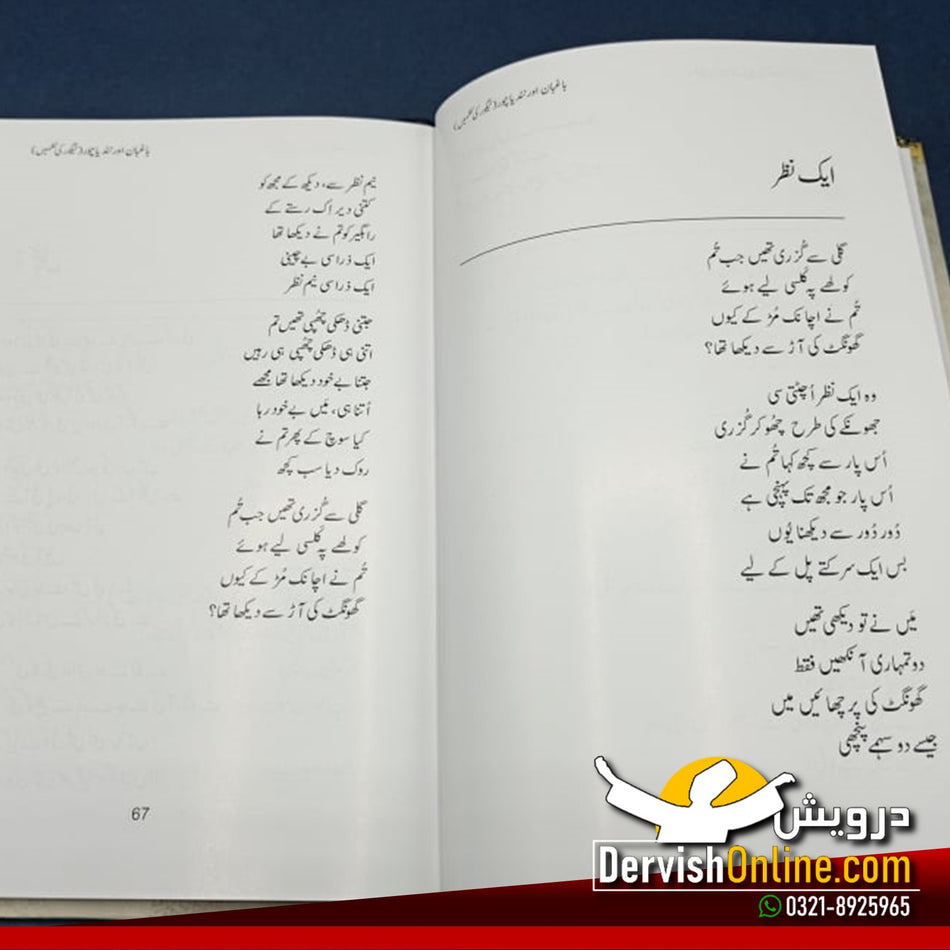 باغبان اور نندیا چور (ٹیگور کی نظمیں)
ایک نظر
گلی سے گُزری تھیں جب تُم
کولھے پہ کُلسی لیے ہوئے
تُم نے اچانک مُڑ کے کیوں
گھونگٹ کی آڑ سے دیکھا تھا؟
وہ ایک نظر اُچٹتی سی
جھونکے کی طرح چھُو کر گُزری
اُس پار سے کچھ کہا تُم نے
اُس پار جو مجھ تک پہنچی ہے
دُور دُور سے دیکھنا یُوں
بس ایک سرکتے پل کے لیے
مَیں نے تو دیکھی تھیں
دو تمہاری آنکھیں فقط
گھونگٹ کی پرچھائیں میں
جیسے دو سہمے پنچھی
باغبان اور نندیا چور (ٹیگور کی نظمیں)
نیم نظر سے، دیکھ کے مجھ کو
کتنی دیر اِک رستے کے
راہگیر کو تم نے دیکھا تھا
ایک ذرا سی بے چینی
ایک ذرا سی نیم نظر
جتنی ڈھکی چھُپی تھیں تم
اتنی ہی ڈھکی چھُپی ہی رہیں
جتنا بے خود دیکھا تھا مجھے
اُتنا ہی، مَیں بے خود رہا
کیا سوچ کے پھر تم نے
روک دیا سب کچھ
گلی سے گُزری تھیں جب تُم
کولھے پہ کُلسی لیے ہوئے
تُم نے اچانک مُڑ کے کیوں
گھونگٹ کی آڑ سے دیکھا تھا؟
67
درویش
DervishOnline.com
0321-8925965